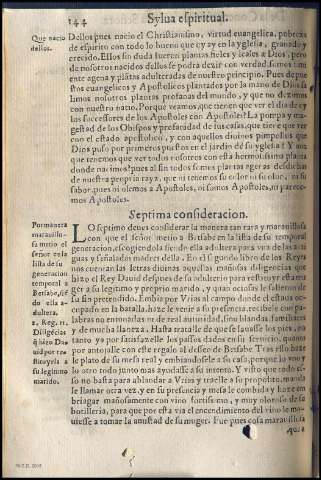 144 Sylua espiritual.
Que nacio
dellos.
Dellos pues nacio el Christianismo, virtud euangelica, pobreza
de espiritu con todo lo bueno que ay en la yglesia, granado y
crecido. Ellos sin duda fueron plantas fieles y leales a Dios, pero
de nosotros nacidos dellos se podra dezir con verdad somos
ente agena y plantas adulteradas de nuestro principio. Pues depues
tos euangelicos y Apostolicos plantados por la mano de Dios sa
limos nosotros plantas profanas del mundo, y que no dezimos
con nuestro nato. Porque veamos, que tienen que ver el dia de oy
los successores de los Apostoles con Apostoles? La pompa y ma
gestad de los Obispos y profanidad de sus casas, que tiene que ver
con el estado apostolico, y con aquellos diuinos pimpollos que
Dios puso por primeros puntos en el jardin de su yglesia? Y
que tenemos que ver todos nosotros con esta hermosissima planta
donde nacimos? pues al fin todos somos plantas agenas desdichas
de nuestra propria rayz, que ni tenemos su color ni su olor, ni su
sabor, pues ni olemos a Apostoles, ni somos Apostoles, ni parece
mos Apostoles.
Septima consideracion.
Por manera
marauillosa
metio el
señor en la
lista de su
generacion
temporal a
Betsabe, siẽ
do ella a-
dultera,
2. Reg. 11.
Diligẽcias
q̃ hizo Da-
uid por tra
er a
su legitimo
marido.
LO septimo deues considerar la manera tan rara y marauillosa
con que el señor metio a Betsabe en la lista de su temporal
generacion, escogiendola siendo ella adultera para vna de las anti
guas y señaladas madres della. En el segundo libro de los Reyes
nos cuentan las letras diuinas aquellas mañosas diligencias que
hizo el Rey Dauid despues de su adulterio para restituyr esta mu
ger a su legitimo y proprio marido, y quan ociosas le salieron de
su fin pretendido. Embia por Vrias al campo donde estaua ocu
pado en la batalla, haze le venir a su presencia, recibe le con pa-
labras no entonadas ni de real autoridad, sino blandas, familiares
y de mucha llaneza. Hasta tratalle de que se lauasse los pies, no
tanto por ya satisfazelle los passos dados en su seruicio, quanto
por antojalle con este regalo al desseo de Betsabe. Tras esto haze
le plato de su mesa real y embiandosele a su casa, porque lo vno y
lo otro todo junto mas ayudasse a su intento. Y visto que todo es
so no basta para ablandar a Vrias y traelle a su proposito, manda
le llamar otra vez, y en su presencia y mesa le combida y haze em
briagar mañosamente con vino fortissimo, y muy oloroso de su
botilleria, para que por esta via el encendimiento del vino le mo-
uiesse a tomar la amistad de su muger. Fue pues cosa marauillosa